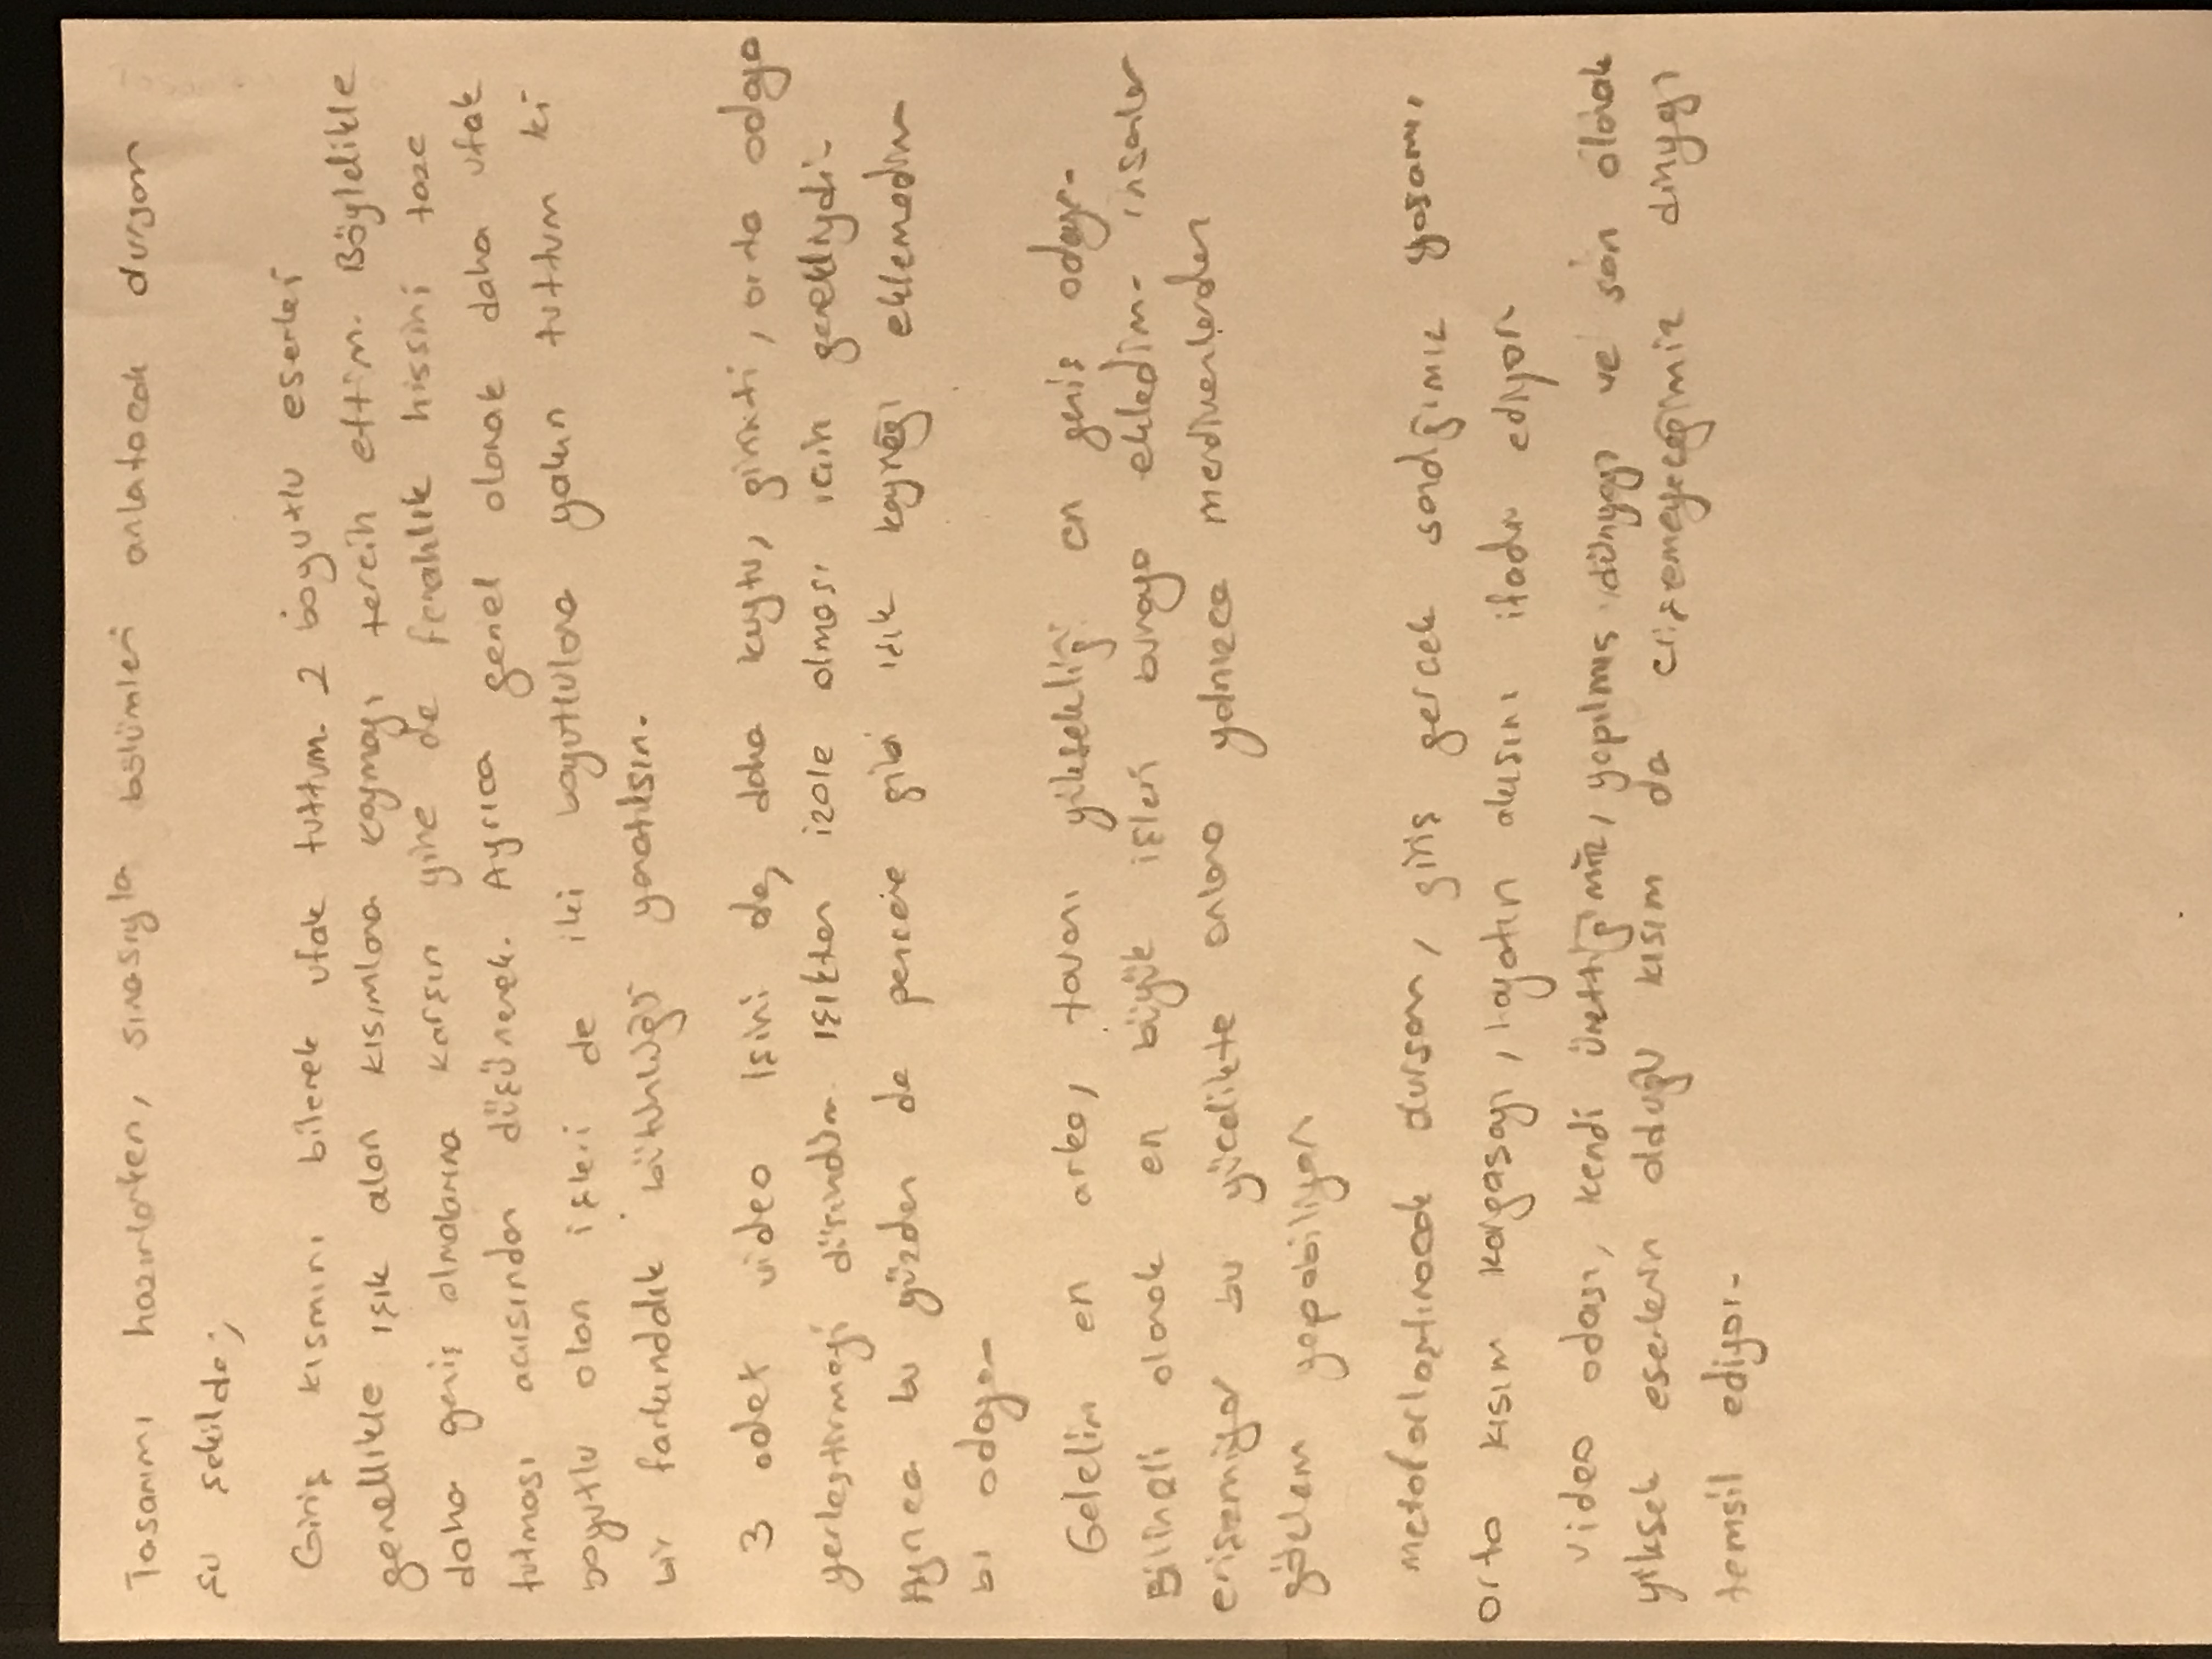 Tasarımı hazırlarken, sırasıyla bölümleri anlatacak dursam
şu şekilde;
Giriş kısmını bilerek ufak tuttum. 2 boyutlu eserleri
genellikle ışık alan kısımlara koymayı tercih ettim. Böylelikle
daha geniş olmalarına karşın yine de ferahlık hissini taze
tutması acısından düşünerek. Ayrıca genel olarak daha ufak
boyutlu olan işleri de iki boyutlulara yakın tuttum ki
bir farkındalık bütünlüğü yaratılsın.
3 adet video işini de, daha kuytu, girintili, orta odaya
yerleştirmeyi düşündüm. Işıktan izole olması icin gerekliydi.
Ayrıca bu yüzden de pencere gibi ışık kaynağı eklemedim
bu odaya.
Gelelim en arka, tavan yüksekliği en geniş odaya.
Bilincli olarak en büyük işleri buraya ekledim. insanlar
erişemiyor bu yücelikte onlara yalnızca merdivenlerden
gözlem yapabiliyor.
metaforlaştıracak dursam, giriş gercek sandığımız yaşamı,
orta kısım kargaşayı, hayatın akışını ifade ediyor.
video odası, kendi ürettiğimiz, yapılmış dünyayı ve son olarak
yüksek eserlerin olduğu kısım da erişemeyeceğimiz dünyayı
temsil ediyor.